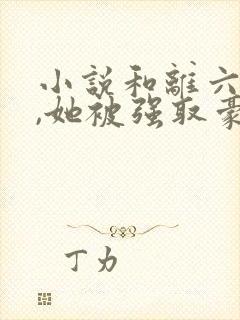 小說和離六
,她被强取豪
丁力